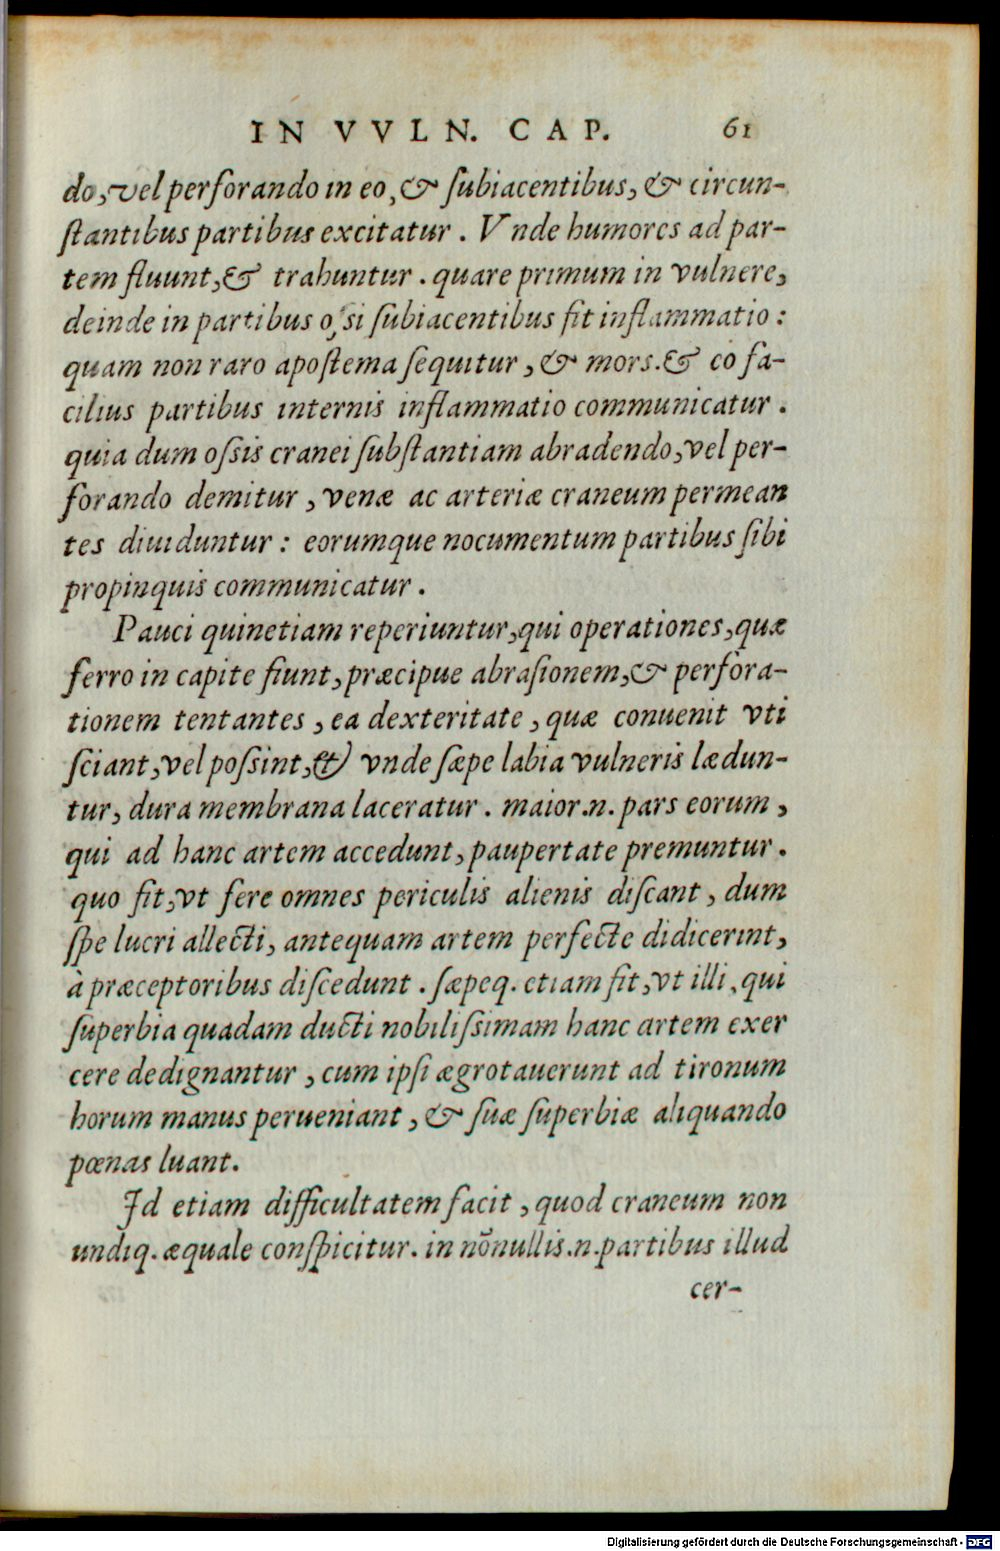 IN VVLN. CAP. 61
do, vel perforando in eo, & ſubiacentibus, & circun-
ſtantibus partibus excitatur. Vnde humores ad par-
tem fluunt, & trahuntur. quare primum in vulnere,
deinde in partibus oſsi ſubiacentibus fit inflammatio:
quam non raro apoſtema ſequitur, & mors. & eo fa-
cilius partibus internis inflammatio communicatur.
quia dum oſsis cranei ſubſtantiam abradendo, vel per-
forando demitur, venæ ac arteriæ craneum permean
tes diuiduntur: eorumque nocumentum partibus ſibi
propinquis communicatur.
Pauci quinetiam reperiuntur, qui operationes, quæ
ferro in capite fiunt, præcipue abraſionem, & perfora-
tionem tentantes, ea dexteritate, quæ conuenit vti
ſciant, vel poſsint, & vnde ſæpe labia vulneris lædun-
tur, dura membrana laceratur. maior .n. pars eorum,
qui ad hanc artem accedunt, paupertate premuntur.
quo fit, vt fere omnes periculis alienis diſcant, dum
ſpe lucri allecti, antequam artem perfecte didicerint,
à præceptoribus diſcedunt. ſæpeq. etiam fit, vt illi, qui
ſuperbia quadam ducti nobiliſsimam hanc artem exer
cere dedignantur, cum ipſi ægrotauerunt ad tironum
horum manus perueniant, & ſuæ ſuperbiæ aliquando
pœnas luant.
Id etiam difficultatem facit, quod craneum non
undiq. æquale conſpicitur. in nõnullis .n. partibus illud
cer-
Digitalisierung gefördert durch die Deutsche Forschungsgemeinschaft - DFG